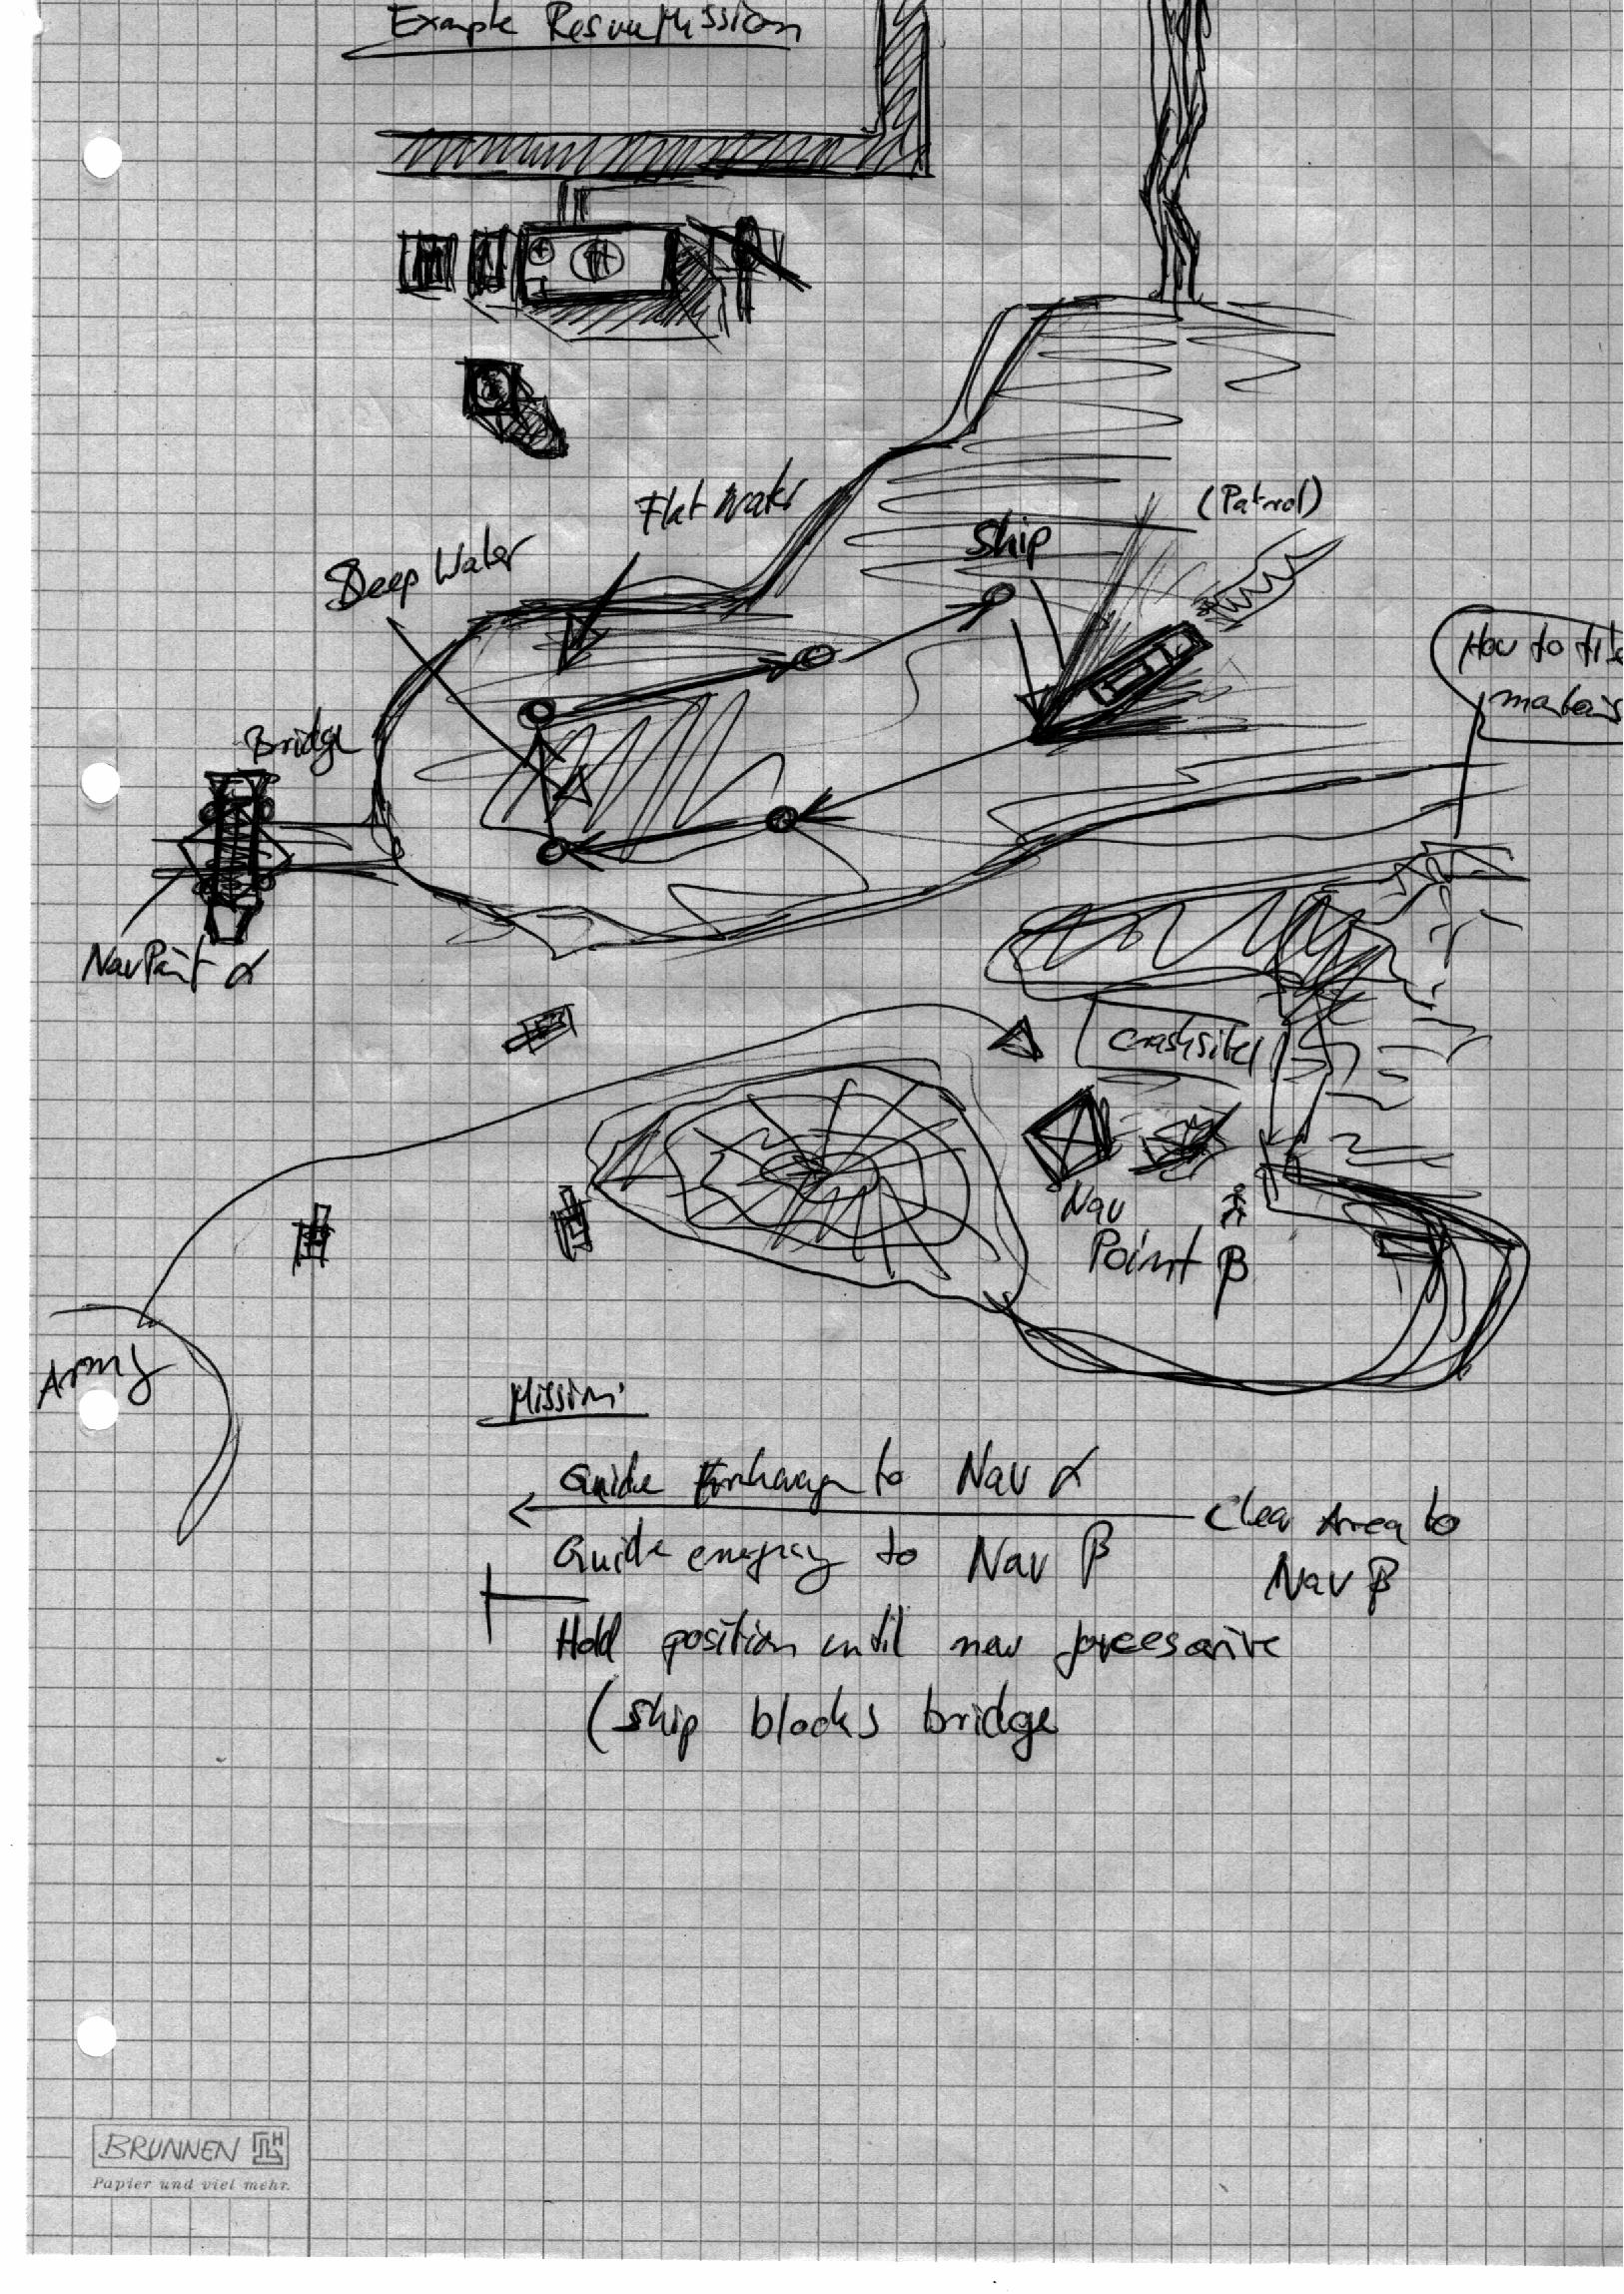 Example Rescue Mission
Flat Water
Deep Water
Ship
(Patrol)
How to
Bridge
NavPoint α
crashsite
Nav
Point β
Army
Mission:
Guide to Nav α
Clear Area to
Nav β
Guide to Nav β
Hold position until new forces arive
(ship blocks bridge
BRUNNEN
Papier und viel mehr.